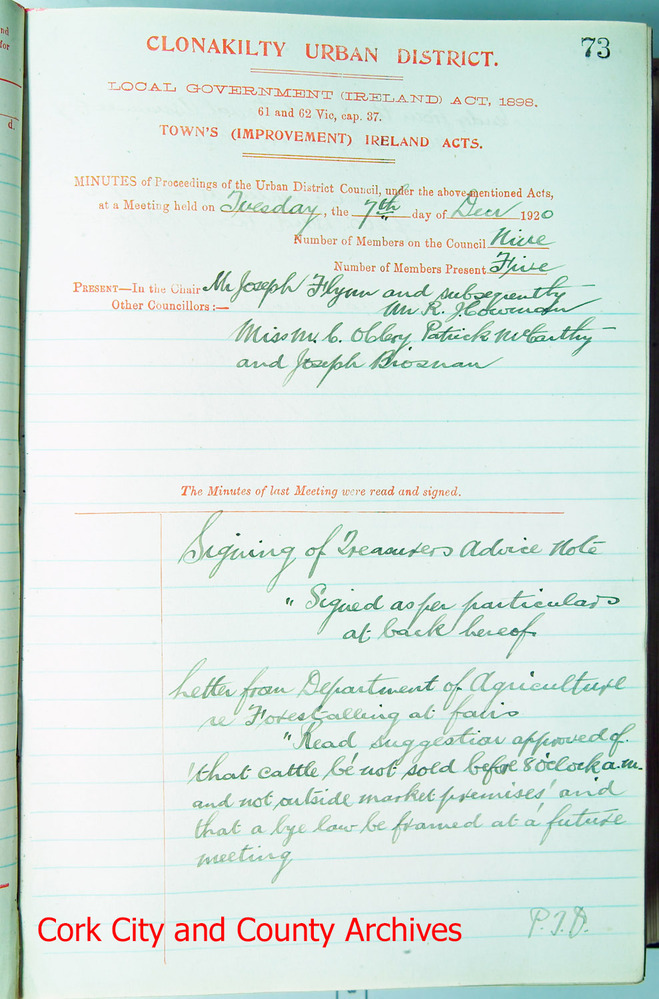 73
CLONAKILTY URBAN DISTRICT.
LOCAL GOVERNMENT (IRELAND) ACT, 1898.
61 and 62 Vic, cap. 37.
TOWN'S (IMPROVEMENT) IRELAND ACTS.
MINUTES of Proceedings of the Urban District Council, under the above-mentioned Acts,
at a Meeting held on Tuesday, the 7th day of Decr 1920
Number of Members on the Council Nine
Number of Members Present Five
PRESENT—In the Chair Mr Joseph Flynn and subsequently
Other Councillors:— Mr R. J Cowman
Miss M. C. Patrick McCarthy
and Joseph Brosnan
The Minutes of last Meeting were read and signed.
Signing of Treasurers Advice Note
" Signed as per particulars
at back hereof
Letter from Department of Agriculture
re Forestalling at fairs
" Read suggestion approved of
'that cattle be not sold before 8 o'clock a.m.
and not outside market premises' and
that a bye law be framed at a future
meeting
P.T.O.
Cork City and County Archives
nd
for
d.